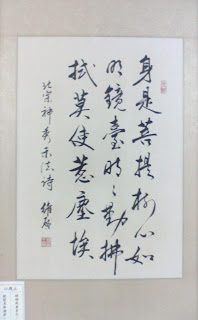 身是菩提樹心如
明鏡臺時々勤拂
拭莫使惹塵埃
北宗神秀示法詩